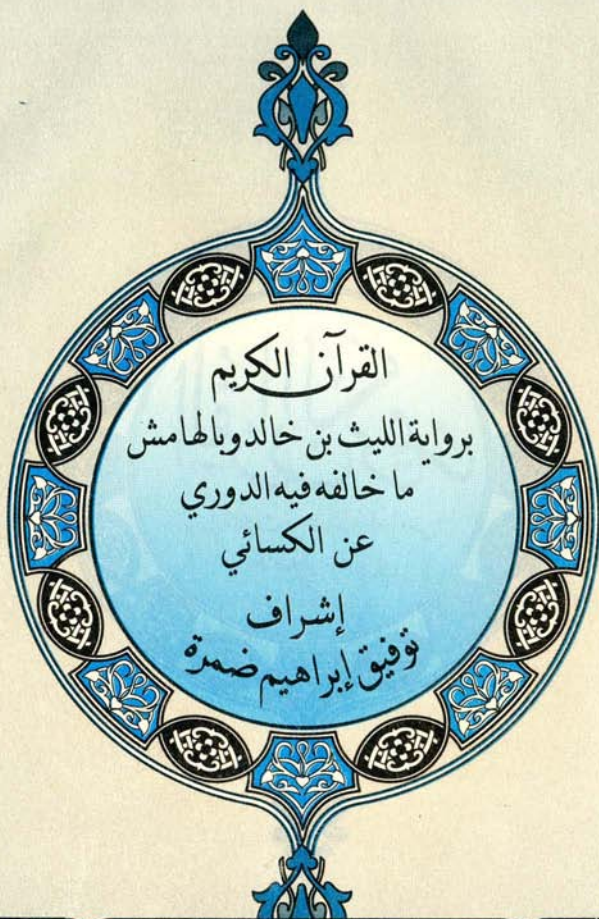 القرآن الكريم
برواية الليث بن خالد وبالهامش
ما خالفه فيه الدوري
عن الكسائي
إشراف
توفيق إبراهيم ضمرة